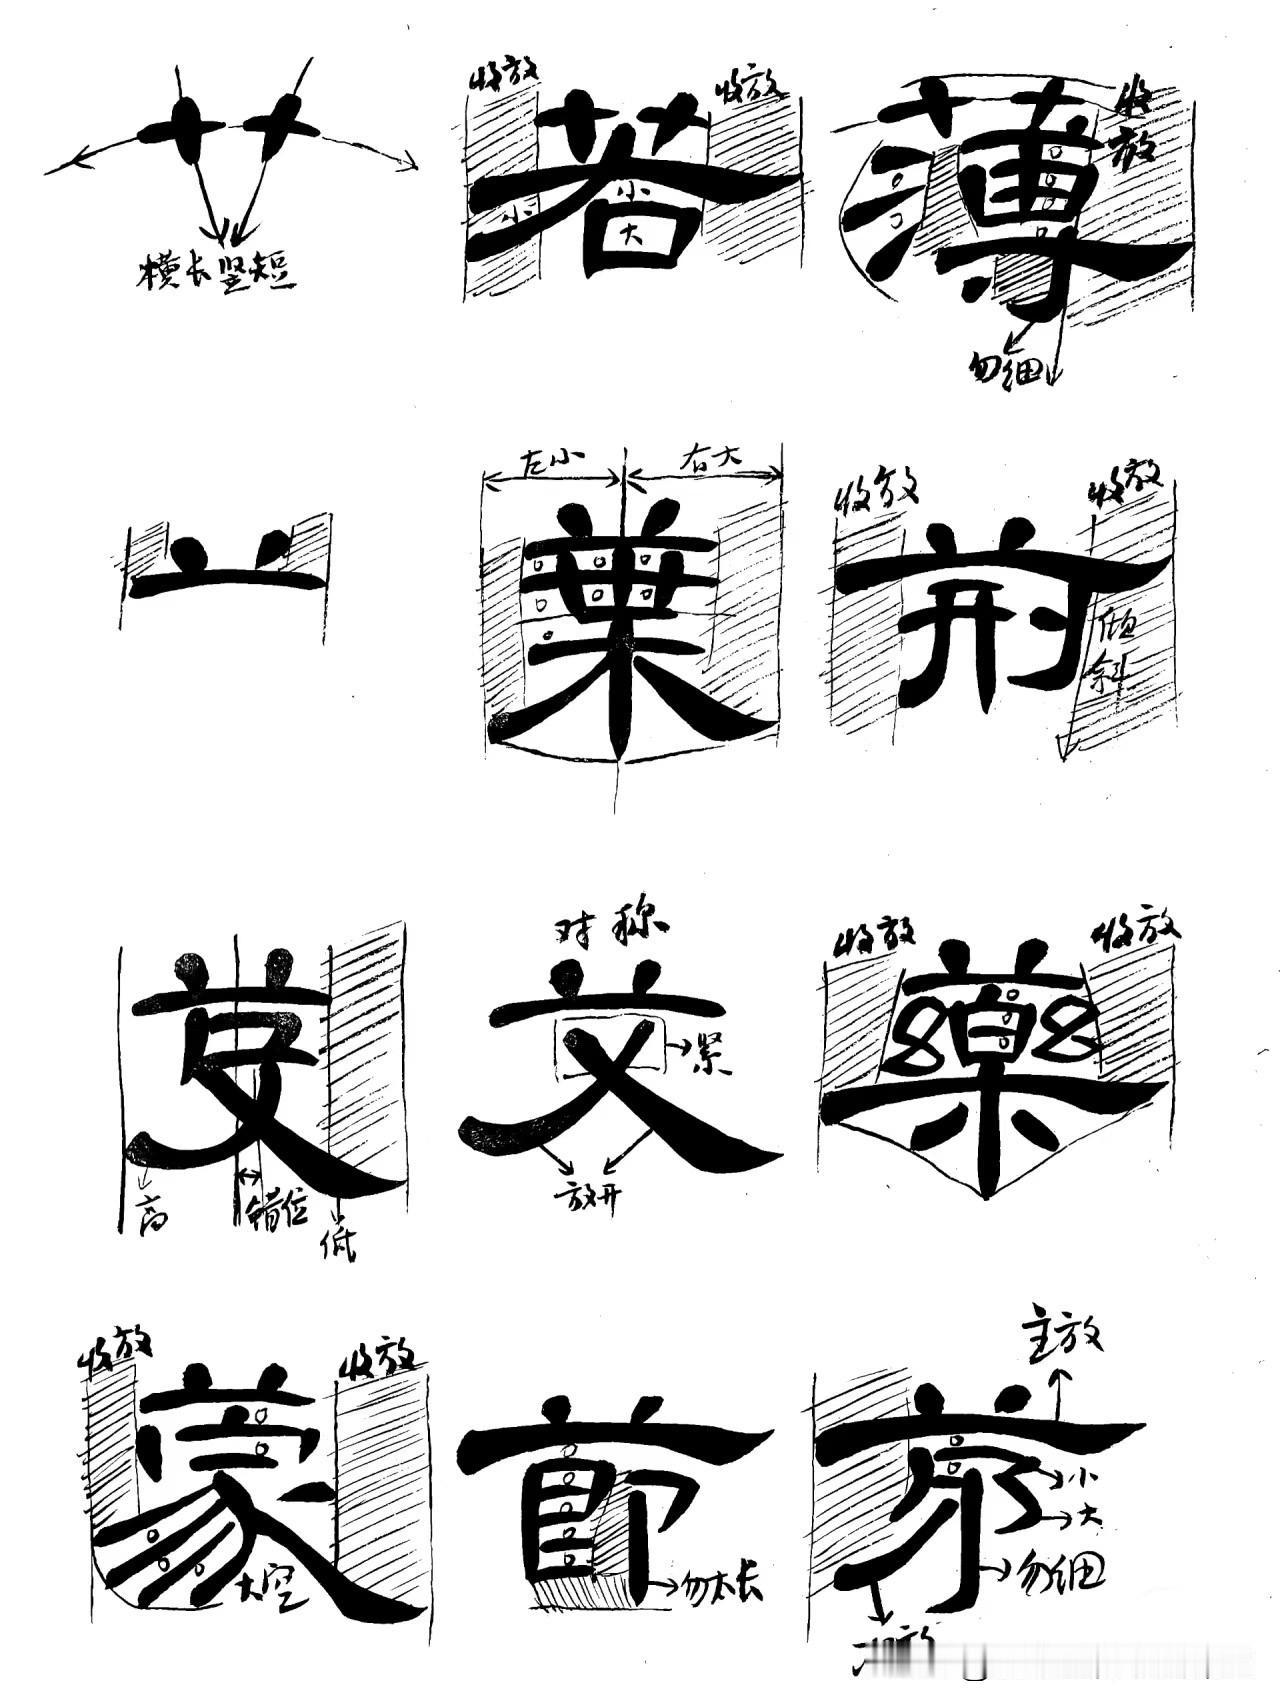 艹
横长竖短
收放 收放
若
小
小
大
薄
收放
勿细
左小 右大
葉
收放 收放
荊
倾斜
高 错位 低
对称
艾
紧
放开
收放 收放
藥
收放 收放
蒙
大空
節
勿太长
主放
小
大
勿细
放